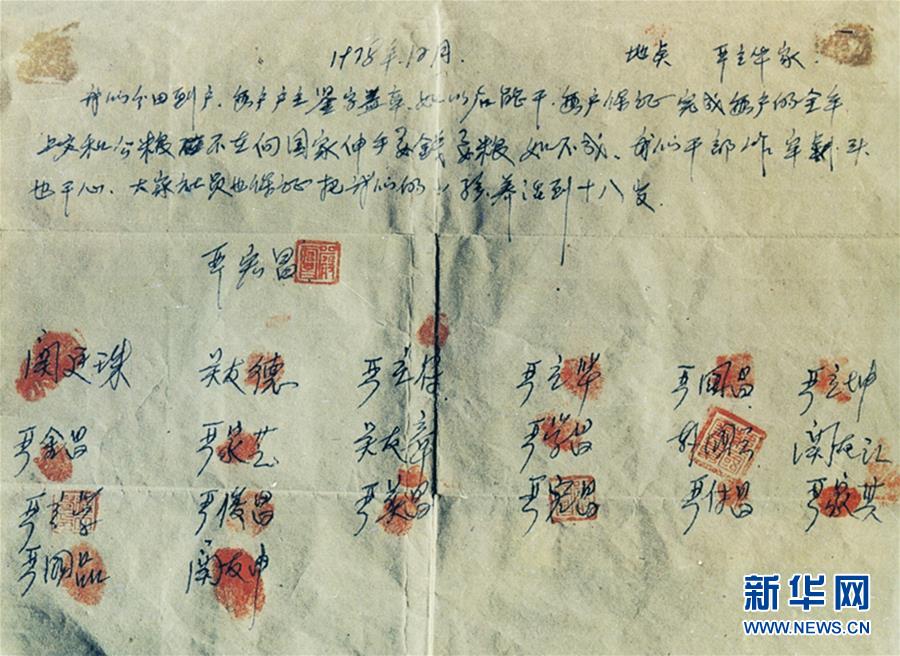 1978年12月. 地点 严立华家.
我们分田到户.每户户主鉴字盖章.如以后能干.每户保证完成每户的全年
上交和公粮不在向国家伸手要钱要粮如不成.我们干部作牢刹头
也干心.大家社员也保证把我们的小孩养活到十八岁.
严宏昌
関廷珠 关友德 严立符 严立华 严国昌 严立坤
严金昌 严家芝 关友章 严学昌 韩国云 関友江
严立学 严俊昌 严美昌 严宏昌 严付昌 严家其
严国品 関友申
新华网
WWW.NEWS.CN